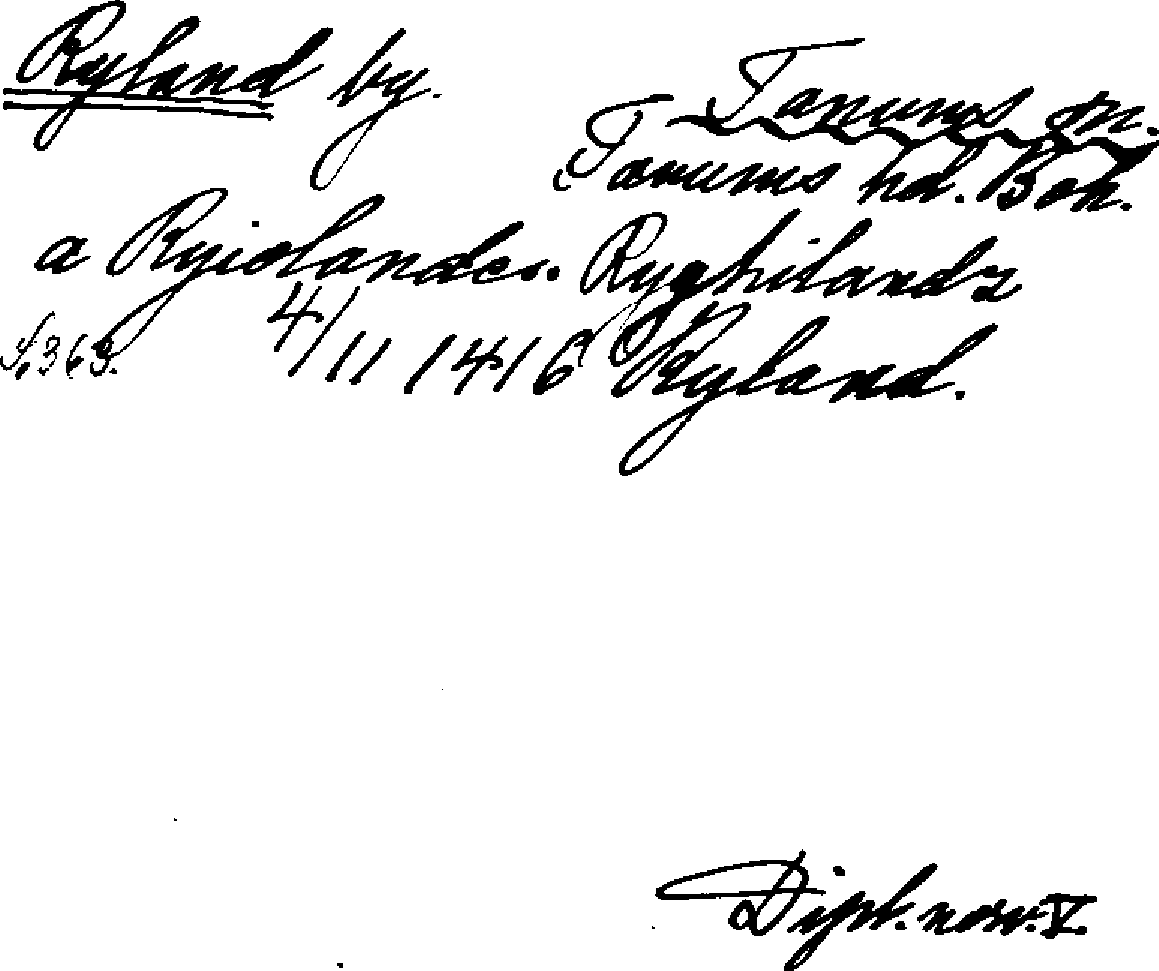 Ryland by.
Tanums sn.
Tanums hd. Boh.
a Ryiolande.. Ryghilandz
S. 363. 4/11 1416 Ryland.
Dipl. norv. V.